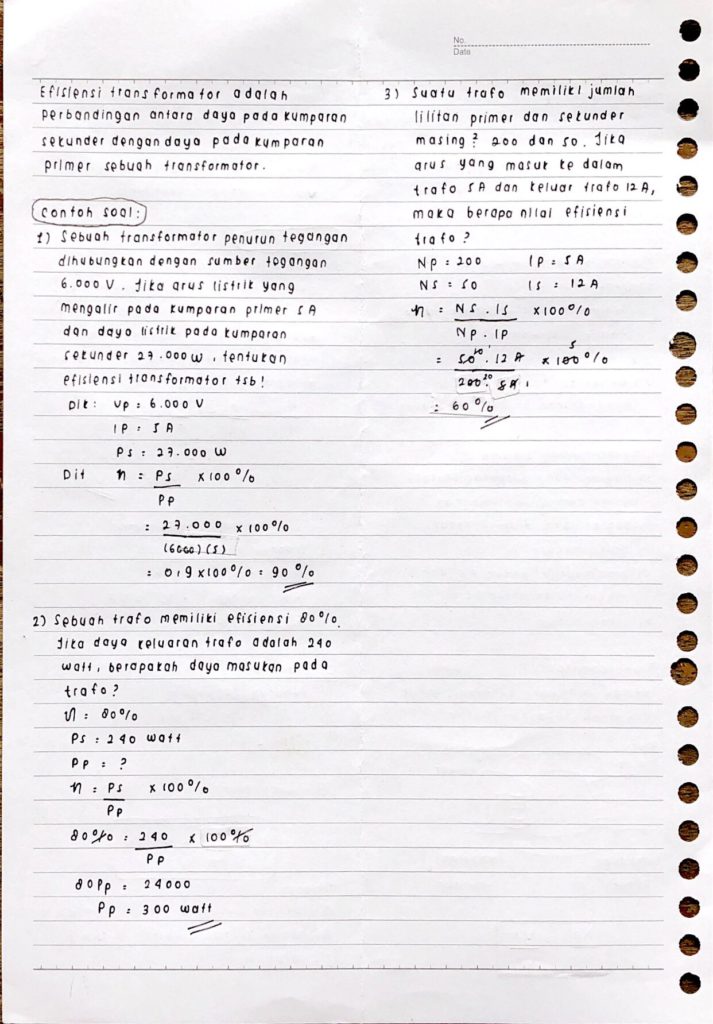 No.
Date
Efisiensi transformator adalah
perbandingan antara daya pada kumparan
sekunder dengan daya pada kumparan
primer sebuah transformator.
Contoh soal:
1) Sebuah transformator penurun tegangan
dihubungkan dengan sumber tegangan
6.000 V. Jika arus listrik yang
mengalir pada kumparan primer 5A
dan daya listrik pada kumparan
sekunder 27.000 W, tentukan
efisiensi transformator tsb!
Dik: Vp = 6.000 V
IP = 5A
Ps = 27.000 W
Dit η = Ps × 100%
Pp
= 27.000 × 100%
(6000)(5)
= 0,9 × 100% = 90%
2) Sebuah trafo memiliki efisiensi 80%.
Jika daya keluaran trafo adalah 240
watt, berapakah daya masukan pada
trafo?
η = 80%
Ps = 240 watt
Pp = ?
η = Ps × 100%
Pp
80% = 240 × 100%
Pp
80Pp = 24000
Pp = 300 watt
3) Suatu trafo memiliki jumlah
lilitan primer dan sekunder
masing² 200 dan 50. Jika
arus yang masuk ke dalam
trafo 5A dan keluar trafo 12A,
maka berapa nilai efisiensi
trafo?
Np = 200 IP = 5A
NS = 50 IS = 12A
η = NS . IS × 100%
Np . IP
= 50 . 12 A × 100%
200 . 5A
= 60%